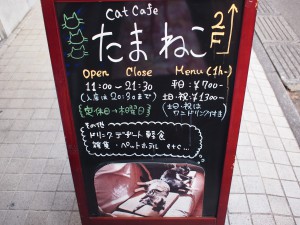 Cat Cafe
たまねこ
2F
Open Close
11:00〜21:30
(入店は20:30まで)
定休日→木曜日
Menu (1h〜)
平日:¥700−
土日・祝:¥1300−
(土日・祝は
ワンドリンク付き)
その他
ドリンク デザート 軽食
雑貨・ペットホテル etc...